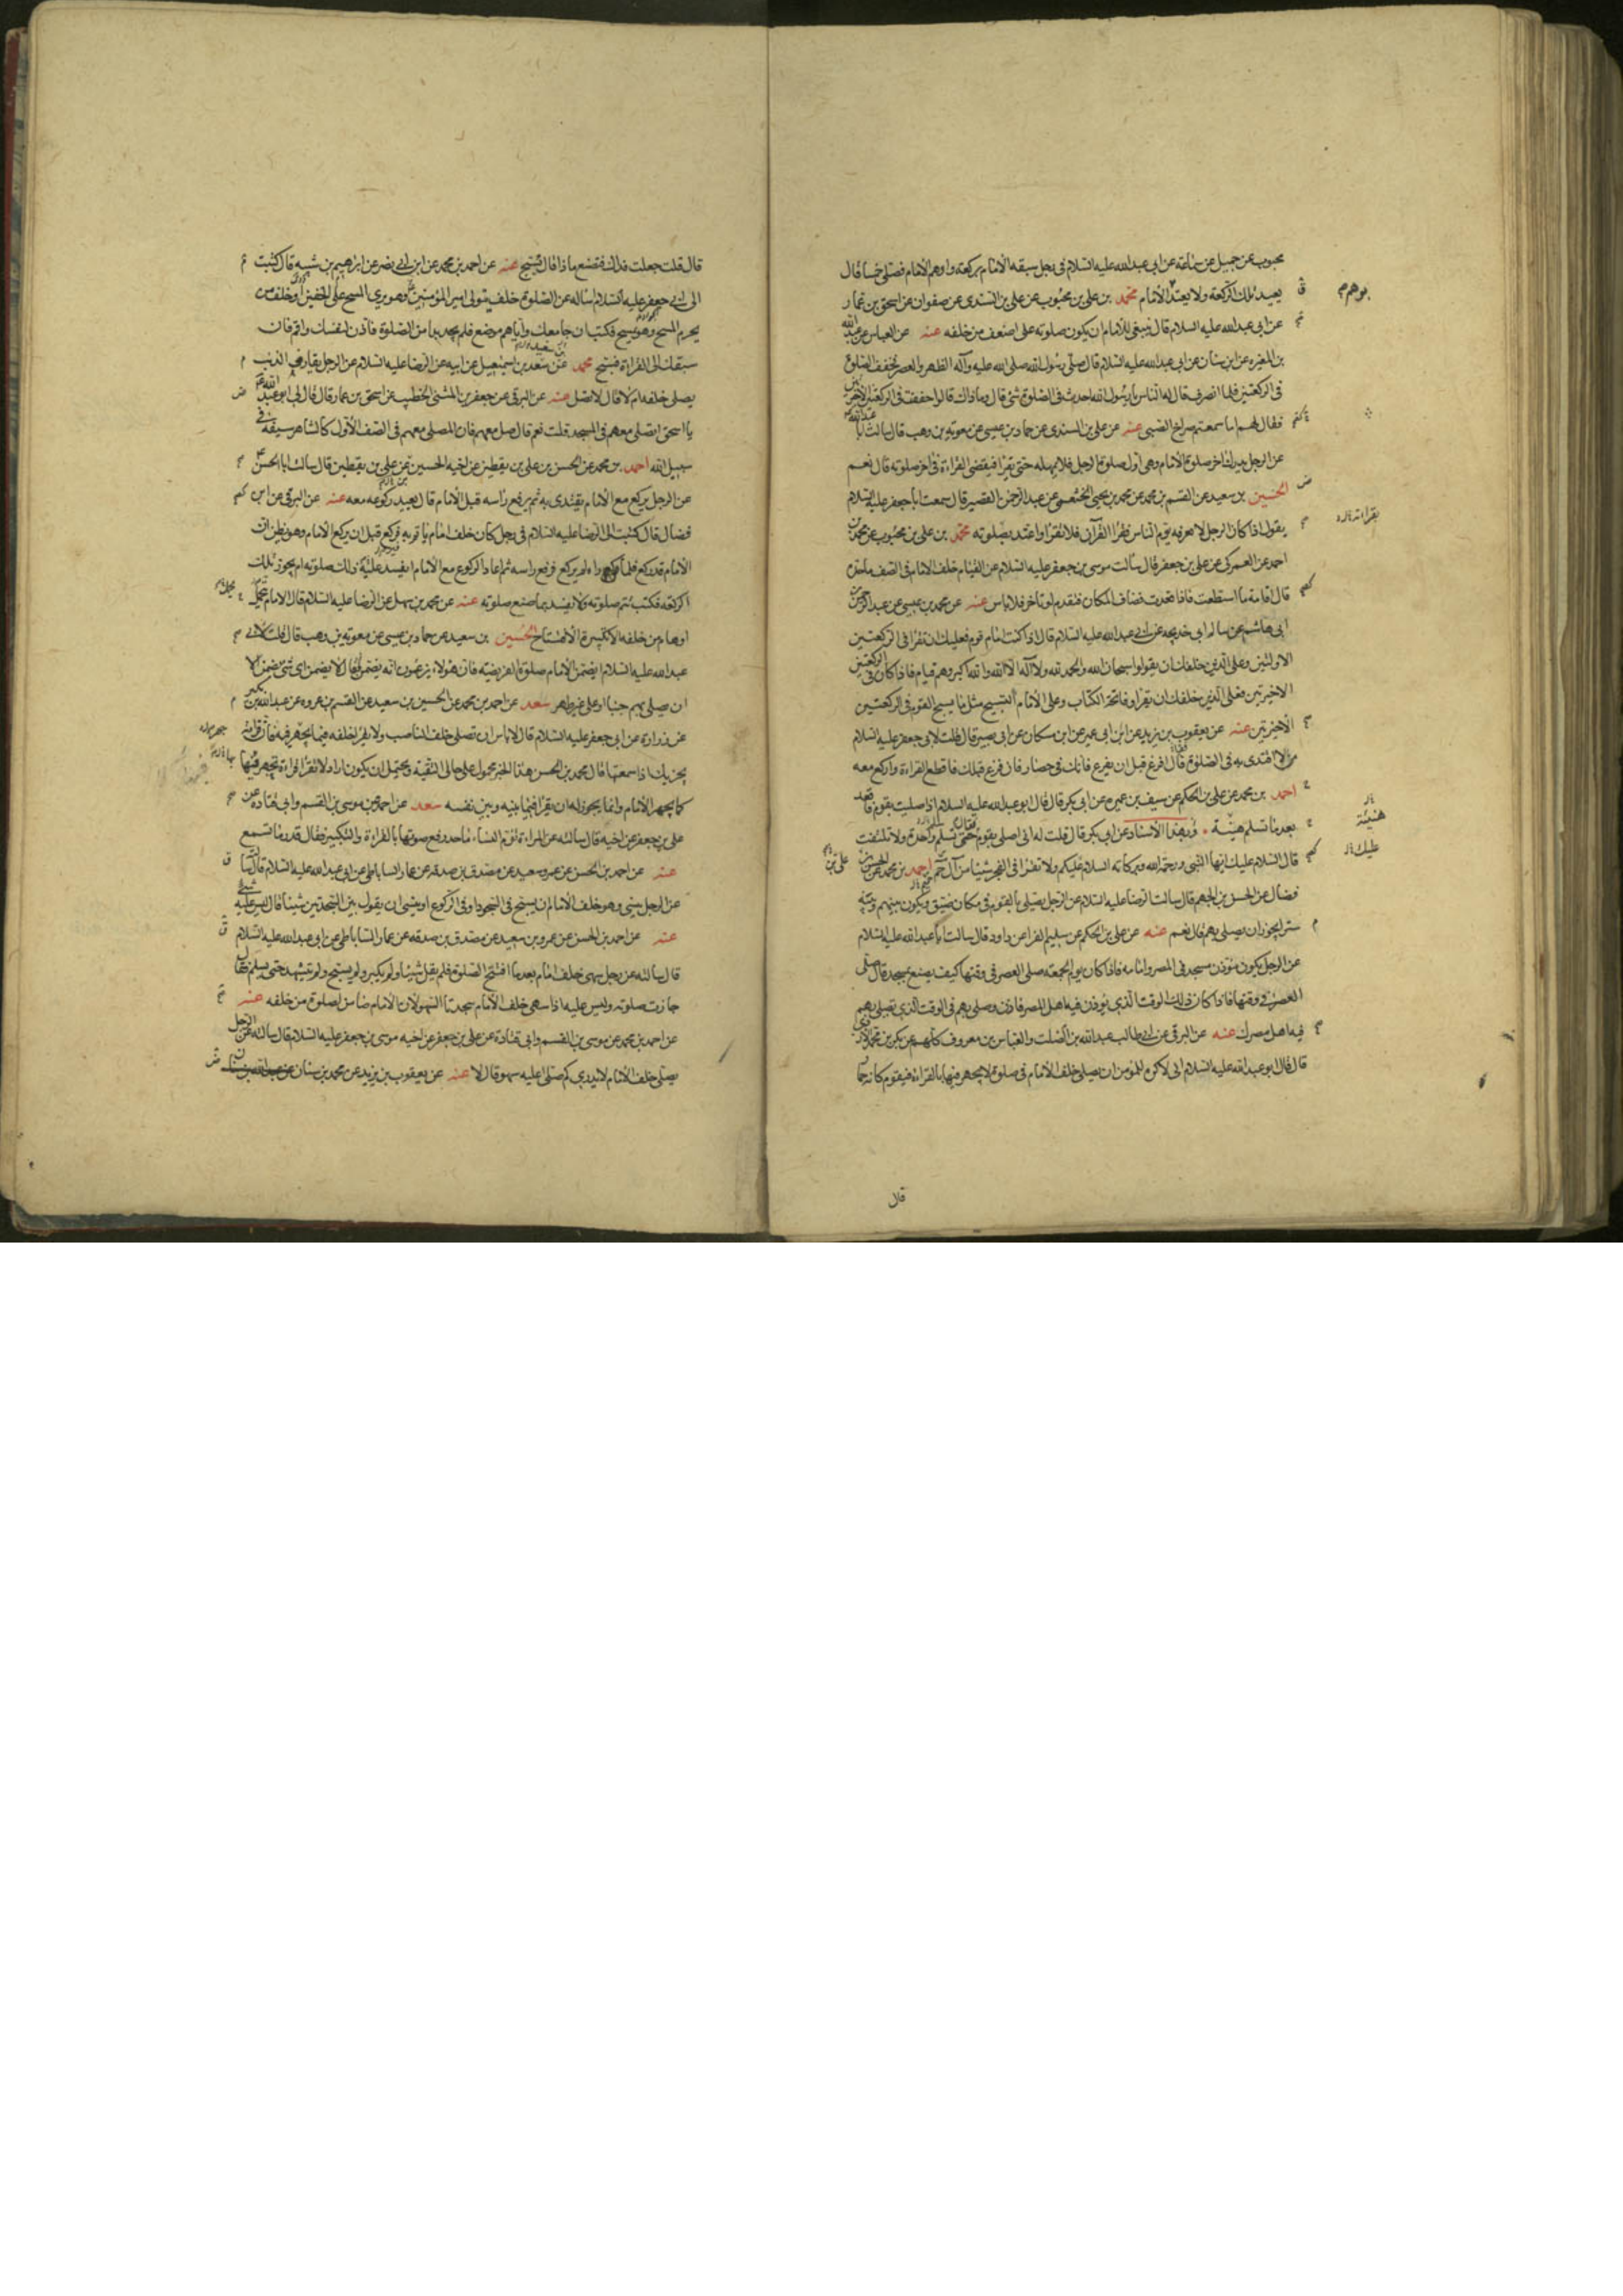 محبوب عن جميل عن سماعة عن ابى عبدالله عليه السلام فى رجل سبقه الامام بركعة واوهم الامام فصلى خمسا قال
يعيد تلك الركعة ولا يعتد الامام محمد بن على بن محبوب عن على بن السندى عن صفوان عن اسحق بن عمار
عن ابى عبدالله عليه السلام قال ينبغى للامام ان يكون صلوته على اضعف من خلفه عنه عن العباس عن عبدالله
بن المغيره عن ابن سنان عن ابى عبدالله عليه السلام قال صلى رسول الله صلى الله عليه وآله الظهر والعصر فخفف الصلوة
فى الركعتين فلما انصرف قال له الناس يا رسول الله احدث فى الصلوة شئ قال وما ذاك قالوا خففت فى الركعتين الاخيرتين
فقال لهم اما سمعتم صراخ الصبى عنه عن على بن السندى عن حماد بن عيسى عن معوية بن وهب قال سالت ابا عبدالله
عن الرجل يدرك اخر صلوة الامام وهى اول صلوة الرجل فلا يمهله حتى يقرا فيقضى القراءة فى اخر صلوته قال نعم
الحسين بن سعيد عن القسم بن محمد عن محمد بن يحيى الخثعمى عن عبد الرحمن القصير قال سمعت ابا جعفر عليه السلام
يقول اذا كان الرجل لا تعرفه يؤم الناس نقرا القرآن فلا تقرا واعتد بصلوته محمد بن على بن محبوب عن محمد بن
احمد عن العمركى عن على بن جعفر قال سالت موسى بن جعفر عليه السلام عن القيام خلف الامام فى الصف ماحده
قال اقامة ما استطعت فاذا قعدت فضاق المكان فتقدم او تاخر فلا باس عنه عن محمد بن عيسى عن عبد الرحمن بن
ابى هاشم عن سالم ابى خديجه عن ابى عبدالله عليه السلام قال اذا كنت امام قوم فعليك ان تقرا فى الركعتين
الاولتين وعلى الذين خلفك ان يقولوا سبحان الله والحمد لله ولا اله الا الله والله اكبر وهم قيام فاذا كان فى الركعتين
الاخيرتين فعلى الذين خلفك ان يقراوا فاتحة الكتاب وعلى الامام التسبيح مثل ما يسبح القوم فى الركعتين
الاخيرتين عنه عن يعقوب بن يزيد عن ابن ابى عمير عن ابن مسكان عن ابى بصير قال قلت لابى جعفر عليه السلام
من لا اقتدى به فى الصلوة قال افرغ قبل ان يفرغ فانك فى حصار فان فرغ قبلك فاقطع القراءة واركع معه
احمد بن محمد عن على بن الحكم عن سيف بن عميره عن ابى بكر قال قال ابو عبدالله عليه السلام اذا صليت بقوم فاقعد
بعد ما تسلم هنيئة وبهذا الاسناد عن ابى بكر قال قلت له انى اصلى بقوم فقال تسلم واحدة ولا تلتفت
قال السلام عليك ايها النبى ورحمة الله وبركاته السلام عليكم ولا تقرا فى الفجر شيئا من آل حم احمد بن محمد عن الحسن بن
فضال عن الحسن بن الجهم قال سالت الرضا عليه السلام عن الرجل يصلى بالقوم فى مكان ضيق ويكون بينهم وبينه
ستر ايجوز ان يصلى بهم قال نعم عنه عن على بن الحكم عن سليم الفرا عن داود قال سالت ابا عبدالله عليه السلام
عن الرجل يكون مؤذن مسجد فى المصر وامامه فاذا كان يوم الجمعة صلى العصر فى وقتها كيف يصنع بمسجده قال صلى
العصر فى وقتها فاذا كان ذلك الوقت الذى يؤذن فيه اهل المصر فاذن وصلى بهم فى الوقت الذى يصلى بهم
فيه اهل مصرك عنه عن البرقى عن ابى طالب عبدالله بن الصلت والعباس بن معروف كلهم عن بكر بن محمد الازدى
قال قال ابو عبدالله عليه السلام انى لاكره للمؤمن ان يصلى خلف الامام فى صلوة لا يجهر فيها بالقراءة فيقوم كانه حمار
يوهم
بقراءته
هنيئة
عليك
قال
قال قلت جعلت فداك فتصنع ماذا قال يسبح عنه عن احمد بن محمد عن ابن ابى نصر عن ابراهيم بن شيبه قال كتبت
الى ابى جعفر عليه السلام اساله عن الصلوة خلف من يتولى امير المؤمنين وهو يرى المسح على الخفين او خلف من
يحرم المسح وهو يمسح فكتب ان جامعك واياهم موضع فلم تجد بدا من الصلوة فاذن لنفسك واقم فان
سبقك الى القراءة فسبح محمد عن سعد بن اسمعيل عن ابيه عن الرضا عليه السلام عن الرجل يقارف الذنب
يصلى خلفه ام لا قال لا تصل عنه عن البرقى عن جعفر بن المثنى الخطيب عن اسحق بن عمار قال قال لى ابو عبدالله
يا اسحق اتصلى معهم فى المسجد قلت نعم قال صل معهم فان المصلى معهم فى الصف الاول كالشاهر سيفه فى
سبيل الله احمد بن محمد عن الحسن بن على بن يقطين عن اخيه الحسين عن على بن يقطين قال سالت ابا الحسن
عن الرجل يركع مع الامام يقتدى به ثم يرفع راسه قبل الامام قال يعيد ركوعه معه عنه عن البرقى عن ابن
فضال قال كتبت الى الرضا عليه السلام فى رجل كان خلف امام ياتم به فركع قبل ان يركع الامام وهو يظن ان
الامام قد ركع فلما راه لم يركع فرفع راسه ثم اعاد الركوع مع الامام ايفسد عليه ذلك صلوته ام يجوز تلك
الركعة فكتب تتم صلوته ولا يفسد بما صنع صلوته عنه عن محمد بن سهل عن الرضا عليه السلام قال الامام يحمل
اوهام من خلفه الا تكبيرة الافتتاح الحسين بن سعيد عن حماد بن عيسى عن معوية بن وهب قال قلت لابى
عبدالله عليه السلام ايضمن الامام صلوة الفريضة فان هؤلاء يزعمون انه يضمن فقال لا يضمن اى شئ يضمن الا
ان يصلى بهم جنبا او على غير طهر سعد عن احمد بن محمد عن الحسين بن سعيد عن القسم بن عروه عن عبدالله بن بكير
عن زرارة عن ابى جعفر عليه السلام قال لا باس ان تصلى خلف الناصب ولا تقرا خلفه فيما يجهر فيه فان قراءته
يجزيك اذا سمعتها قال محمد بن الحسن هذا الخبر محمول على حال التقية ويحتمل ان يكون اراد لا تقرا قراءة تجهر فيها
كما يجهر الامام وانما يجوز له ان يقرا فيما بينه وبين نفسه سعد عن احمد عن موسى بن القسم وابى قتادة عن
على بن جعفر عن اخيه قال سالته عن المراة تؤم النساء ماحد رفع صوتها بالقراءة والتكبير فقال قدر ما تسمع
عنه عن احمد بن الحسن عن عمرو بن سعيد عن مصدق بن صدقه عن عمار الساباطى عن ابى عبدالله عليه السلام قال سالته
عن الرجل ينسى وهو خلف الامام ان يسبح فى السجود او فى الركوع او ينسى ان يقول بين السجدتين شيئا قال ليس عليه شئ
عنه عن احمد بن الحسن عن عمرو بن سعيد عن مصدق بن صدقه عن عمار الساباطى عن ابى عبدالله عليه السلام
قال سالته عن رجل سهى خلف امام بعد ما افتتح الصلوة فلم يقل شيئا ولم يكبر ولم يسبح ولم يتشهد حتى يسلم فقال
جازت صلوته وليس عليه اذا سهى خلف الامام سجدتا السهو لان الامام ضامن لصلوة من خلفه عنه
عن احمد بن محمد عن موسى بن القسم وابى قتادة عن على بن جعفر عن اخيه موسى بن جعفر عليه السلام قال سالته عن الرجل
يصلى خلف الامام لا يدرى كم صلى اعليه سهو قال لا عنه عن يعقوب بن يزيد عن محمد بن سنان